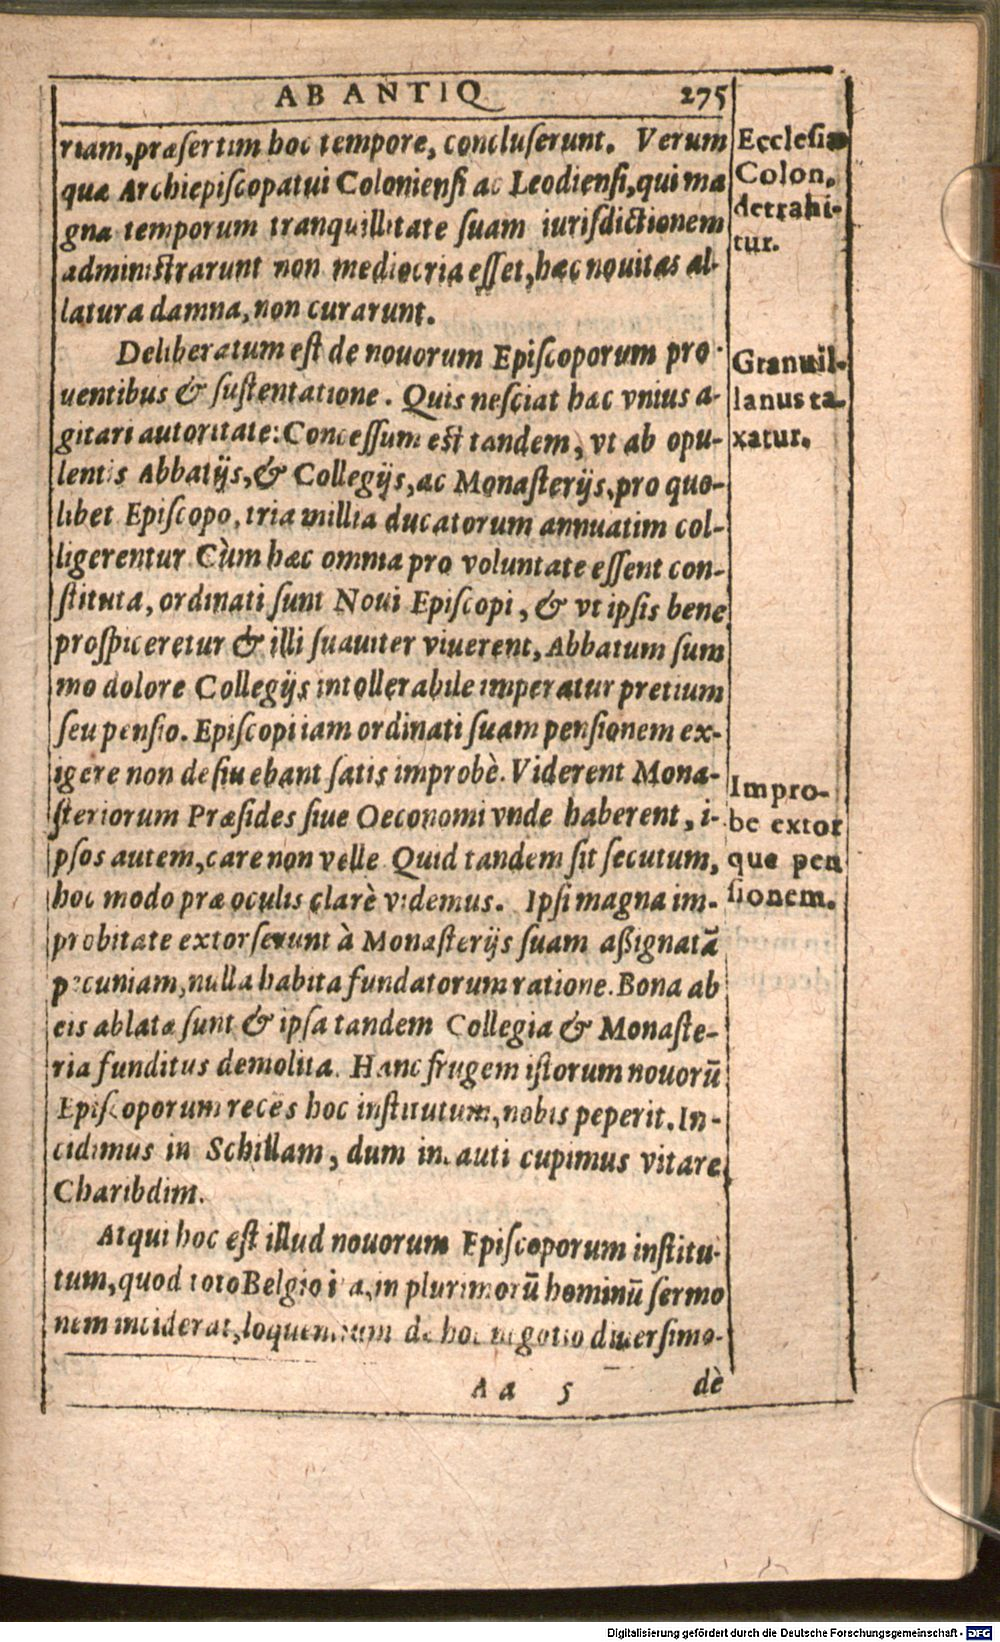 AB ANTIQ 275
riam, præsertim hoc tempore, concluserunt. Verum
quæ Archiepiscopatui Coloniensi ac Leodiensi, qui ma
gna temporum tranquillitate suam iurisdictionem
administrarunt non mediocria esset, hæc nouitas al-
latura damna, non curarunt.
Deliberatum est de nouorum Episcoporum pro-
uentibus & sustentatione. Quis nesciat hæc vnius a-
gitari autoritate: Concessum est tandem, vt ab opu-
lentis Abbatijs, & Collegijs, ac Monasterijs, pro quo-
libet Episcopo, tria millia ducatorum annuatim col-
ligerentur Cùm hæc omnia pro voluntate essent con-
stituta, ordinati sunt Noui Episcopi, & vt ipsis bene
prospiceretur & illi suauiter viuerent, Abbatum sum
mo dolore Collegijs intollerabile imperatur pretium
seu pensio. Episcopi iam ordinati suam pensionem ex-
igere non desiuebant satis improbè. Viderent Mona-
steriorum Præsides siue Oeconomi vnde haberent, i-
psos autem, care non velle Quid tandem sit secutum,
hoc modo præ oculis clarè videmus. Ipsi magna im-
probitate extorserunt à Monasterijs suam aßignatā
pecuniam, nulla habita fundatorum ratione. Bona ab
eis ablata sunt & ipsa tandem Collegia & Monaste-
ria funditus demolita. Hanc frugem istorum nouorū
Episcoporum recēs hoc institutum, nobis peperit. In-
cidimus in Schillam, dum incauti cupimus vitare
Charibdim.
Atqui hoc est illud nouorum Episcoporum institu-
tum, quod toto Belgio in plurimorū hominū sermo
nem inciderat, loquentium de hoc negotio diuersimo-
Aa 5 dè
Ecclesiæ
Colon.
detrahi-
tur.
Granuil-
lanus ta-
xatur.
Impro-
be extor
que pen
sionem.
Digitalisierung gefördert durch die Deutsche Forschungsgemeinschaft - DFG